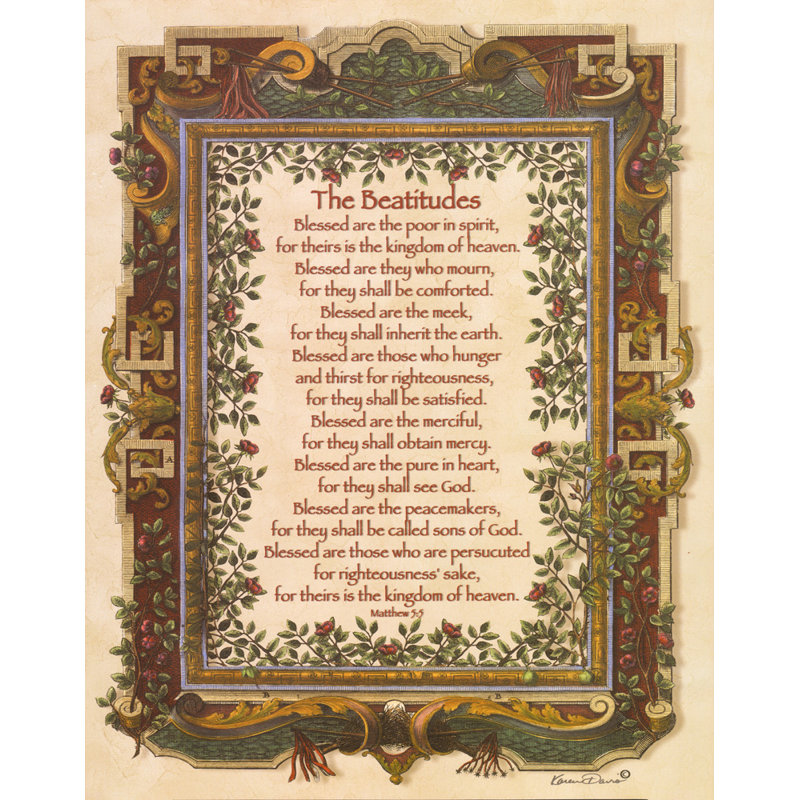 The Beatitudes
Blessed are the poor in spirit,
for theirs is the kingdom of heaven.
Blessed are they who mourn,
for they shall be comforted.
Blessed are the meek,
for they shall inherit the earth.
Blessed are those who hunger
and thirst for righteousness,
for they shall be satisfied.
Blessed are the merciful,
for they shall obtain mercy.
Blessed are the pure in heart,
for they shall see God.
Blessed are the peacemakers,
for they shall be called sons of God.
Blessed are those who are persucuted
for righteousness' sake,
for theirs is the kingdom of heaven.
Matthew 5:5
A
B B
Karen Davis ©